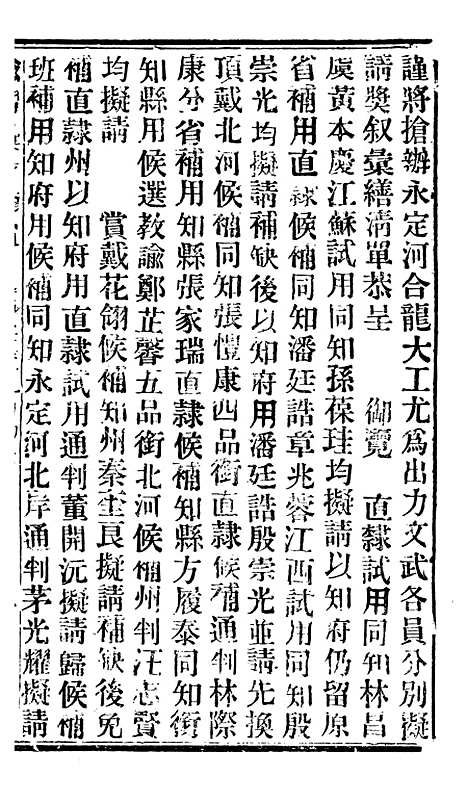 謹將搶辦永定河合龍大工尤爲出力文武各員分別擬
請奬叙彙繕清單恭呈　御覽　直隸試用同知林昌
虞黃本慶江蘇試用同知孫葆珪均擬請以知府仍留原
省補用直隸候補同知潘廷誥章兆蓉江西試用同知殷
崇光均擬請補缺後以知府用潘廷誥殷崇光並請先換
頂戴北河候補同知張愷康四品銜直隸候補通判林際
康分省補用知縣張家瑞直隸候補知縣方履泰同知銜
知縣用候選教諭鄭芷馨五品銜北河候補州判汪志賢
均擬請　賞戴花翎候補知州秦奎良擬請補缺後免
補直隸州以知府用直隸試用通判董開沅擬請歸候補
班補用知府用候補同知永定河北岸通判茅光耀擬請